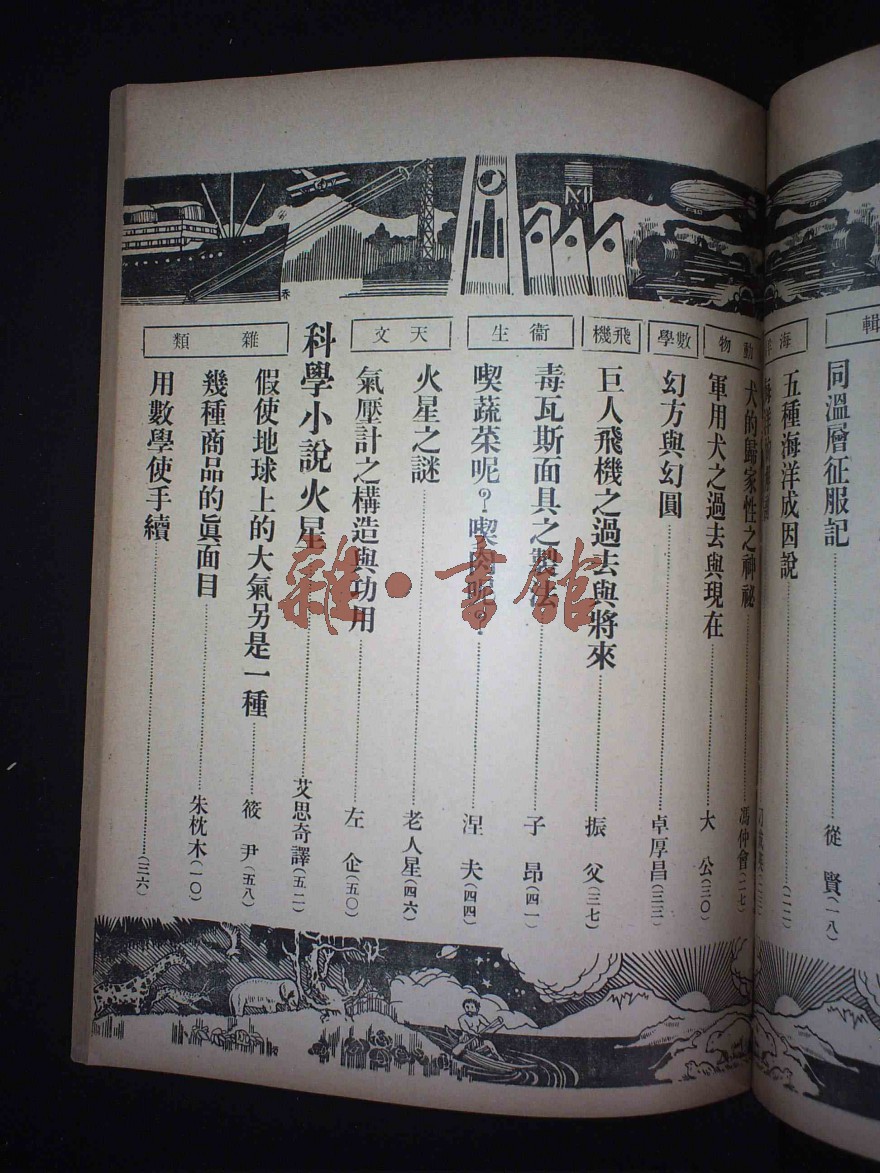 輯
同溫層征服記 從賢(一八)
海
五種海洋成因說 (二二)
動物
犬的歸家性之神祕 馮仲會(二七)
軍用犬之過去與現在 大公(三〇)
數學
幻方與幻圓 卓厚昌(三三)
飛機
巨人飛機之過去與將來 振父(三七)
衞生
毒瓦斯面具之製法 子昂(四一)
喫蔬菜呢?喫肉呢? 涅夫(四四)
天文
火星之謎 老人星(四六)
氣壓計之構造與功用 左企(五〇)
科學小說火星 艾思奇譯(五二)
雜類
假使地球上的大氣另是一種 筱尹(五八)
幾種商品的眞面目 朱枕木(一〇)
用數學使手續 (三六)
雜·書館
M